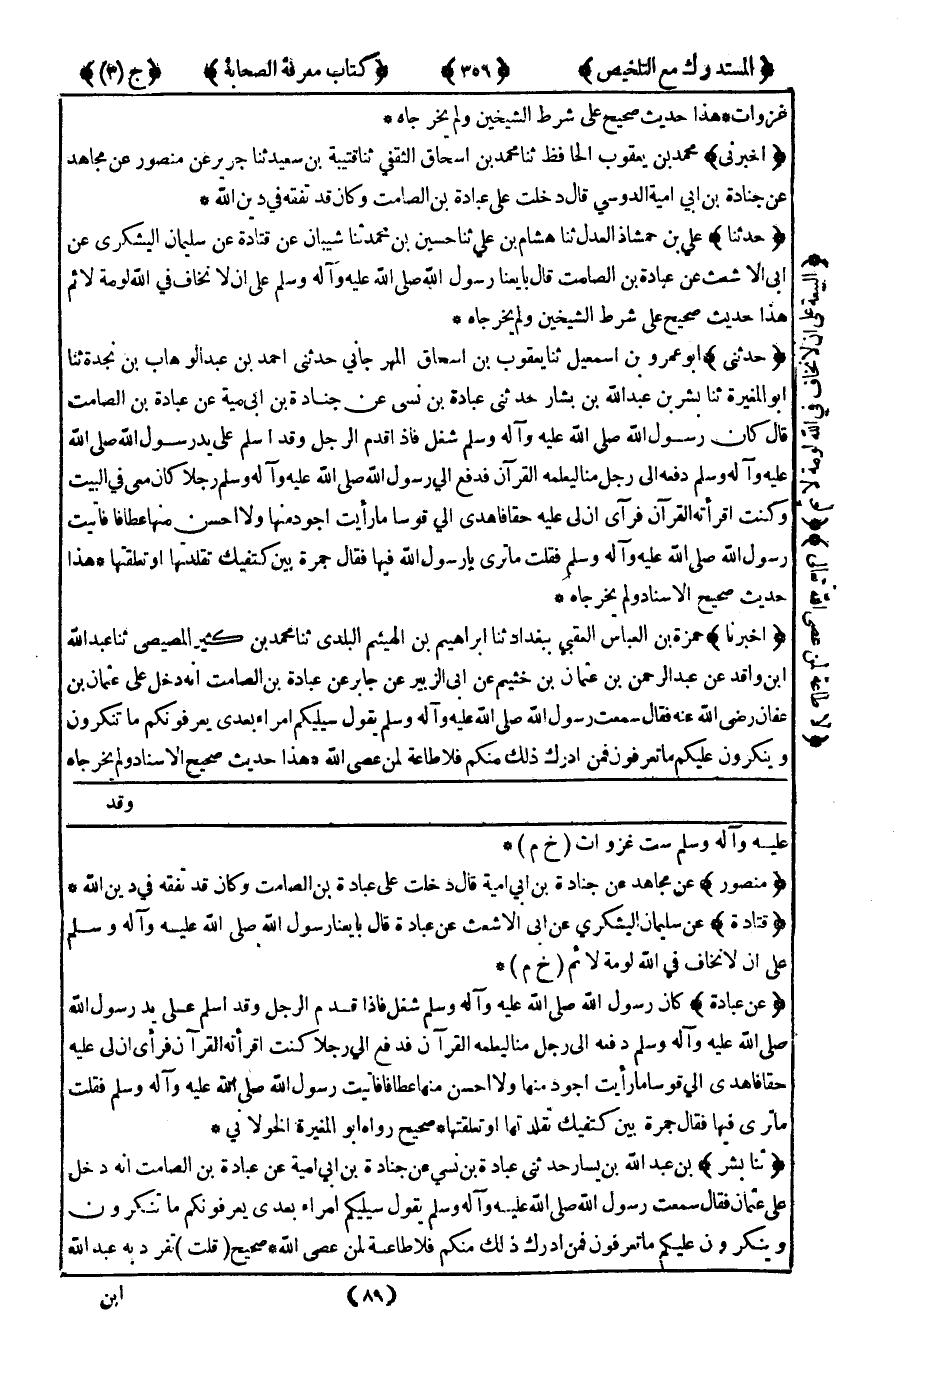 ﴿ المستدرك مع التلخيص ﴾ ﴿ ٣٥٦ ﴾ ﴿ كتاب معرفة الصحابة ﴾ ﴿ ج (٣) ﴾
غزوات * هذا حديث صحيح على شرط الشيخين ولم يخرجاه *
﴿ اخبرنى ﴾ محمد بن يعقوب الحافظ ثنا محمد بن اسحاق الثقفي ثنا قتيبة بن سعيد ثنا جرير عن منصور عن مجاهد
عن جنادة بن ابي امية الدوسي قال دخلت على عبادة بن الصامت وكان قد تفقه في دين الله *
﴿ حدثنا ﴾ علي بن حمشاذ العدل ثنا هشام بن علي ثنا حسين بن محمد ثنا شيبان عن قتادة عن سليمان اليشكرى عن
ابى الاشعث عن عبادة بن الصامت قال بايعنا رسول الله صلى الله عليه وآله وسلم على ان لا نخاف في الله لومة لائم
هذا حديث صحيح على شرط الشيخين ولم يخرجاه *
﴿ حدثنى ﴾ ابو عمرو بن اسمعيل ثنا يعقوب بن اسحاق المهرجاني حدثنى احمد بن عبد الوهاب بن نجدة ثنا
ابو المغيرة ثنا بشر بن عبد الله بن بشار حدثنى عبادة بن نسى عن جنادة بن ابى مية عن عبادة بن الصامت
قال كان رسول الله صلى الله عليه وآله وسلم شغل فاذا قدم الرجل وقد اسلم على يد رسول الله صلى الله
عليه وآله وسلم دفعه الى رجل منا ليعلمه القرآن فدفع الي رسول الله صلى الله عليه وآله وسلم رجلا كان معى في البيت
وكنت اقرأته القرآن فرآى ان لى عليه حقا فاهدى الي قوسا ما رأيت اجود منها ولا احسن منها عطافا فاتيت
رسول الله صلى الله عليه وآله وسلم فقلت ما ترى يا رسول الله فيها فقال جمرة بين كتفيك تقلدتها او تعلقتها * هذا
حديث صحيح الاسناد ولم يخرجاه *
﴿ اخبرنا ﴾ حمزة بن العباس العقبي ببغداد ثنا ابراهيم بن الهيثم البلدى ثنا محمد بن كثير المصيصى ثنا عبد الله
ابن واقد عن عبد الرحمن بن عثمان بن خثيم عن ابى الزبير عن جابر عن عبادة بن الصامت انه دخل على عثمان بن
عفان رضى الله عنه فقال سمعت رسول الله صلى الله عليه وآله وسلم يقول سيليكم امراء بعدى يعرفونكم ما تنكرون
وينكرون عليكم ما تعرفون فمن ادرك ذلك منكم فلا طاعة لمن عصى الله * هذا حديث صحيح الاسناد ولم يخرجاه
وقد
﴿ البيعة على ان لا نخاف في الله لومة لائم ﴾ ﴿ لا طاعة لمن عصى الله تعالى ﴾
عليه وآله وسلم ست غزوات ( خ م ) *
﴿ منصور ﴾ عن مجاهد عن جنادة بن ابي امية قال دخلت على عبادة بن الصامت وكان قد تفقه في دين الله *
﴿ قتادة ﴾ عن سليمان اليشكري عن ابى الاشعث عن عبادة قال بايعنا رسول الله صلى الله عليه وآله وسلم
على ان لا نخاف في الله لومة لائم ( خ م ) *
﴿ عن عبادة ﴾ كان رسول الله صلى الله عليه وآله وسلم شغل فاذا قدم الرجل وقد اسلم على يد رسول الله
صلى الله عليه وآله وسلم دفعه الى رجل منا ليعلمه القرآن فدفع الي رجلا كنت اقرأته القرآن فرأى ان لى عليه
حقا فاهدى الي قوسا ما رأيت اجود منها ولا احسن منها عطافا فاتيت رسول الله صلى الله عليه وآله وسلم فقلت
ما ترى فيها فقال جمرة بين كتفيك تقلدتها او تعلقتها * صحيح رواه ابو المغيرة الخولاني *
﴿ ثنا بشر ﴾ بن عبد الله بن يسار حدثنى عبادة بن نسي عن جنادة بن ابي امية عن عبادة بن الصامت انه دخل
على عثمان فقال سمعت رسول الله صلى الله عليه وآله وسلم يقول سيليكم امراء بعدى يعرفونكم ما تنكرون
وينكرون عليكم ما تعرفون فمن ادرك ذلك منكم فلا طاعة لمن عصى الله * صحيح ( قلت ) تفرد به عبد الله
(٨٩) ابن